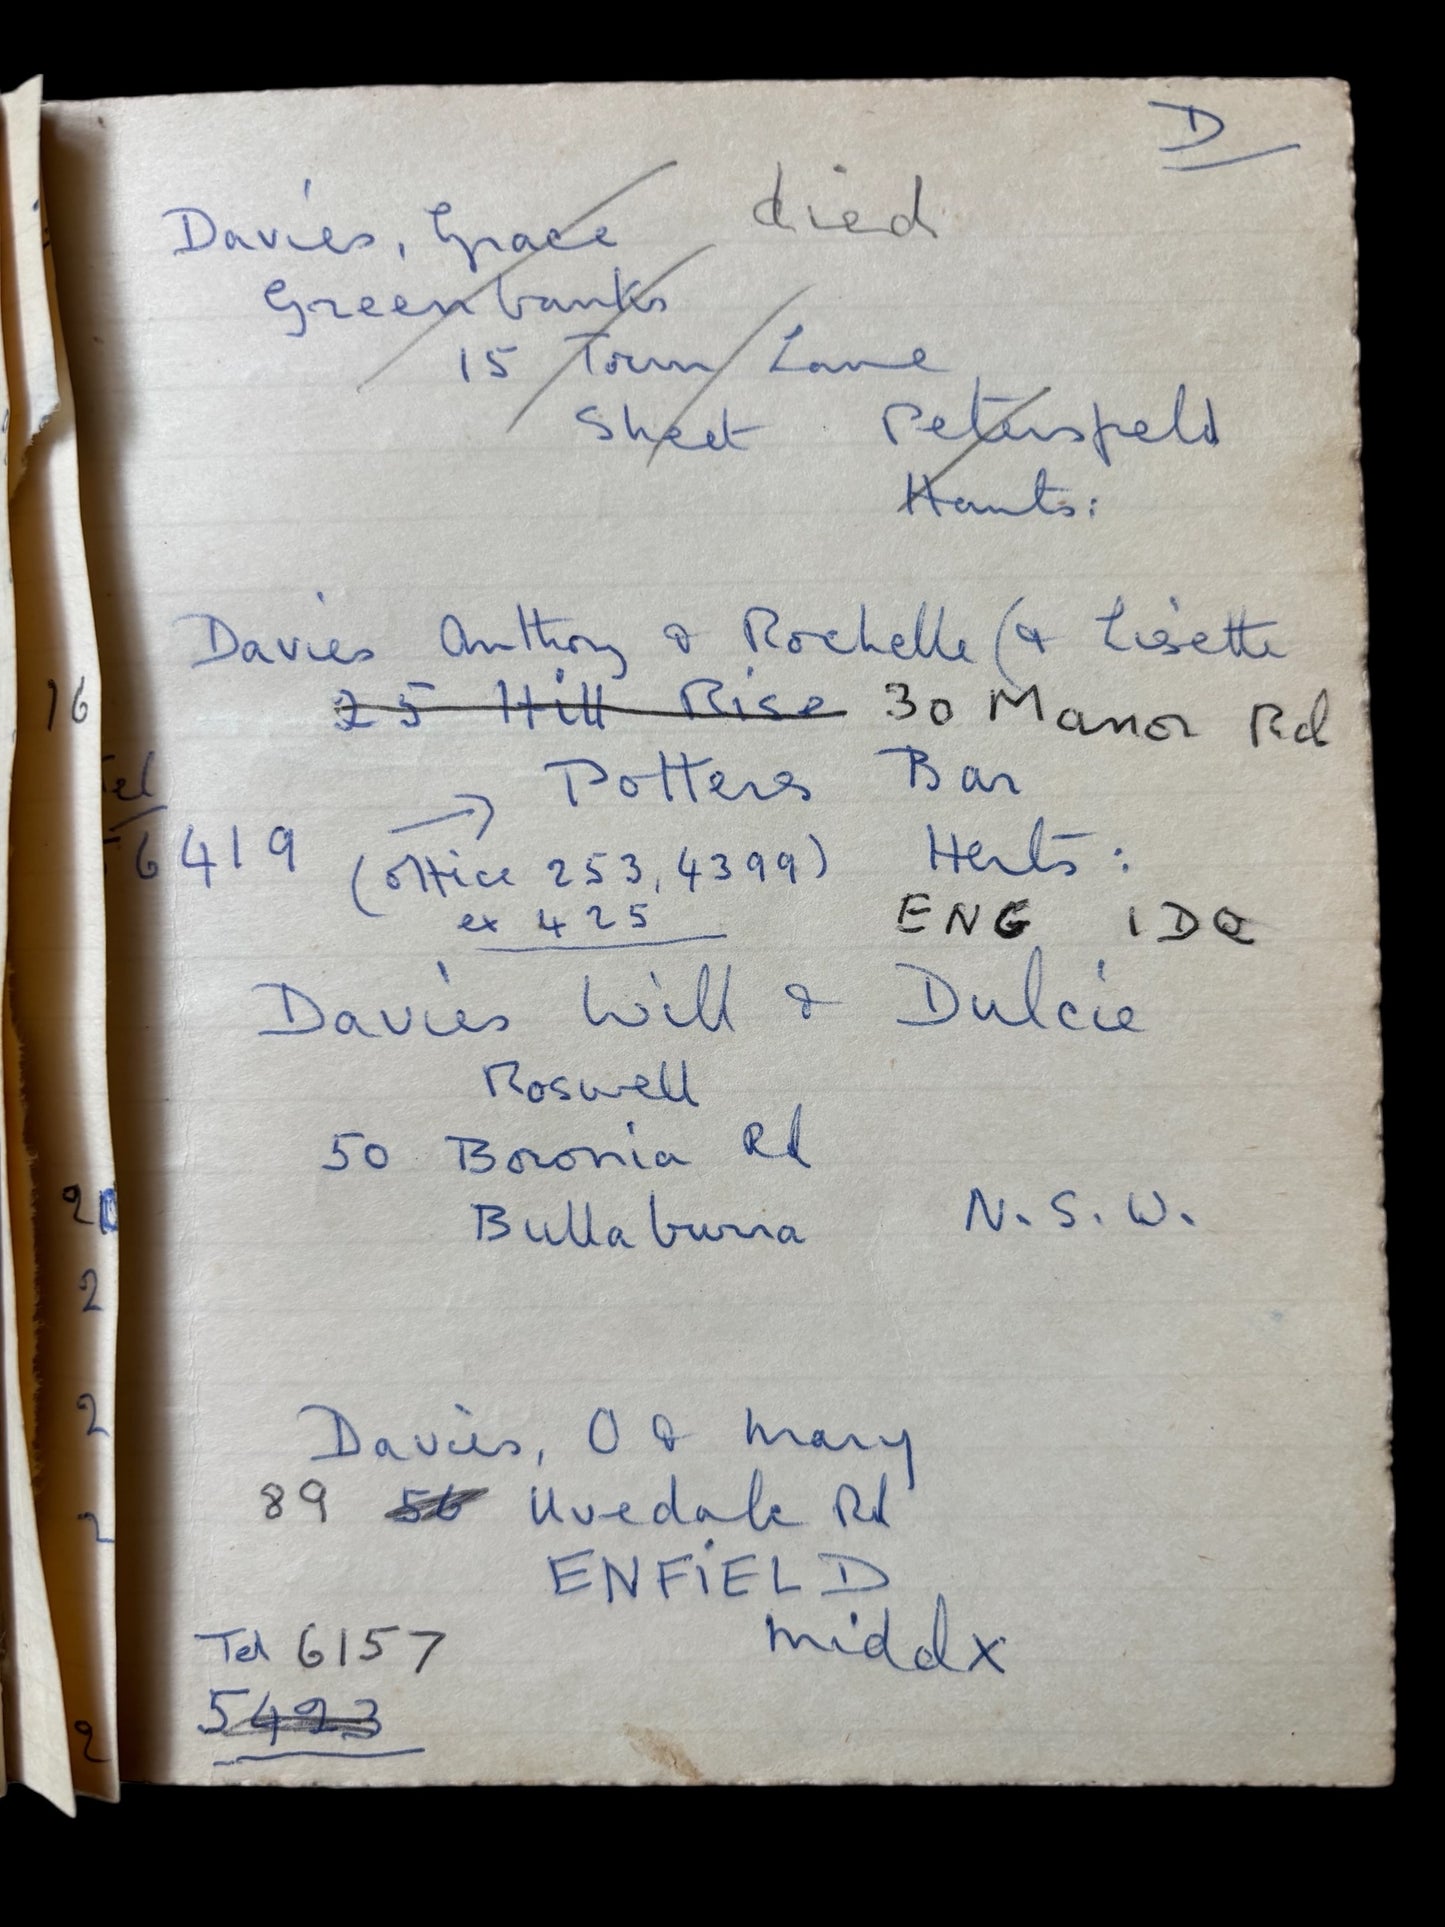 D
Davies, Grace died
Greenbanks
15 Town Lane
Sheet Petersfield
Hants:
Davies Anthony & Rochelle (& Lisette
25 Hill Rise 30 Manor Rd
16
Potters Bar
Tel
56419 (office 253, 4399) Herts:
ex 425 ENG 1DQ
Davies Will & Dulcie
Roswell
50 Boronia Rd
Bullaburra N.S.W.
2
2
2
2
2
Davies, O & Mary
89 56 Uvedale Rd
ENFiELD
Middx
Tel 6157
5423